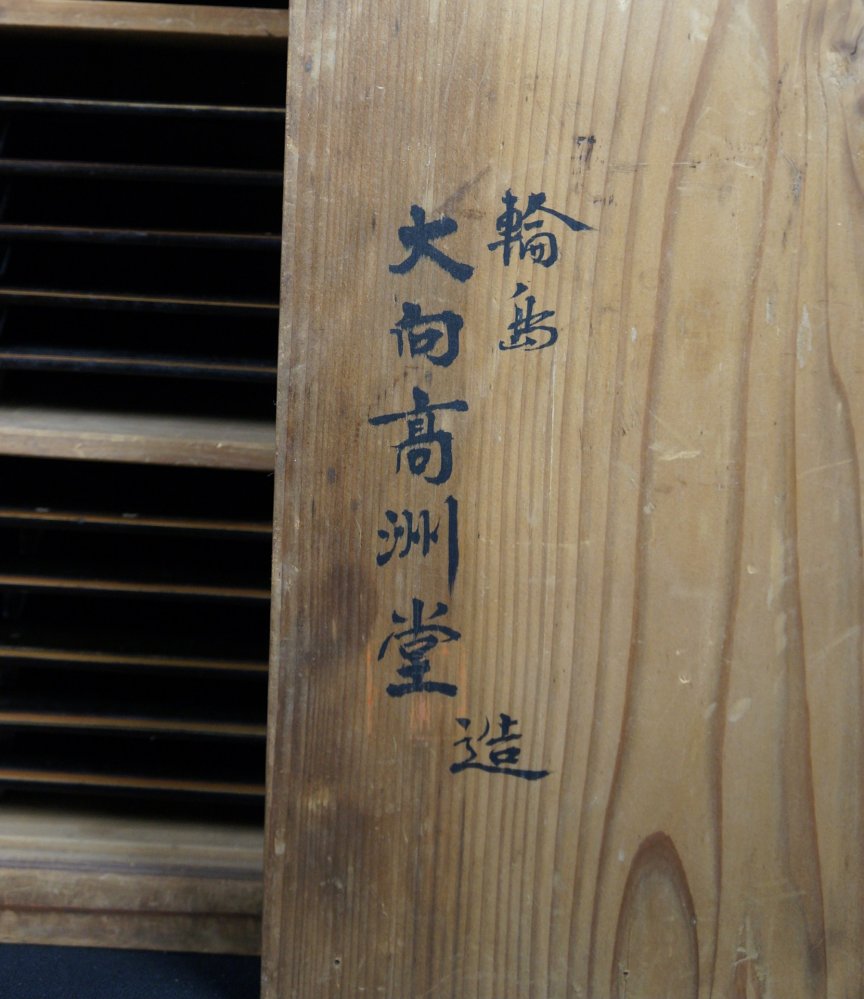 輪島
大向高洲堂
造